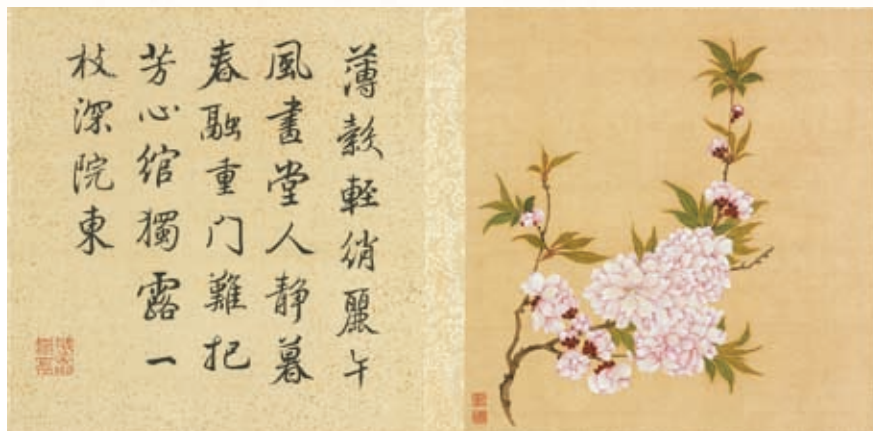 薄縠輕綃麗午
風畫堂人靜暮
春融重门難把
芳心綰獨露一
枝深院東